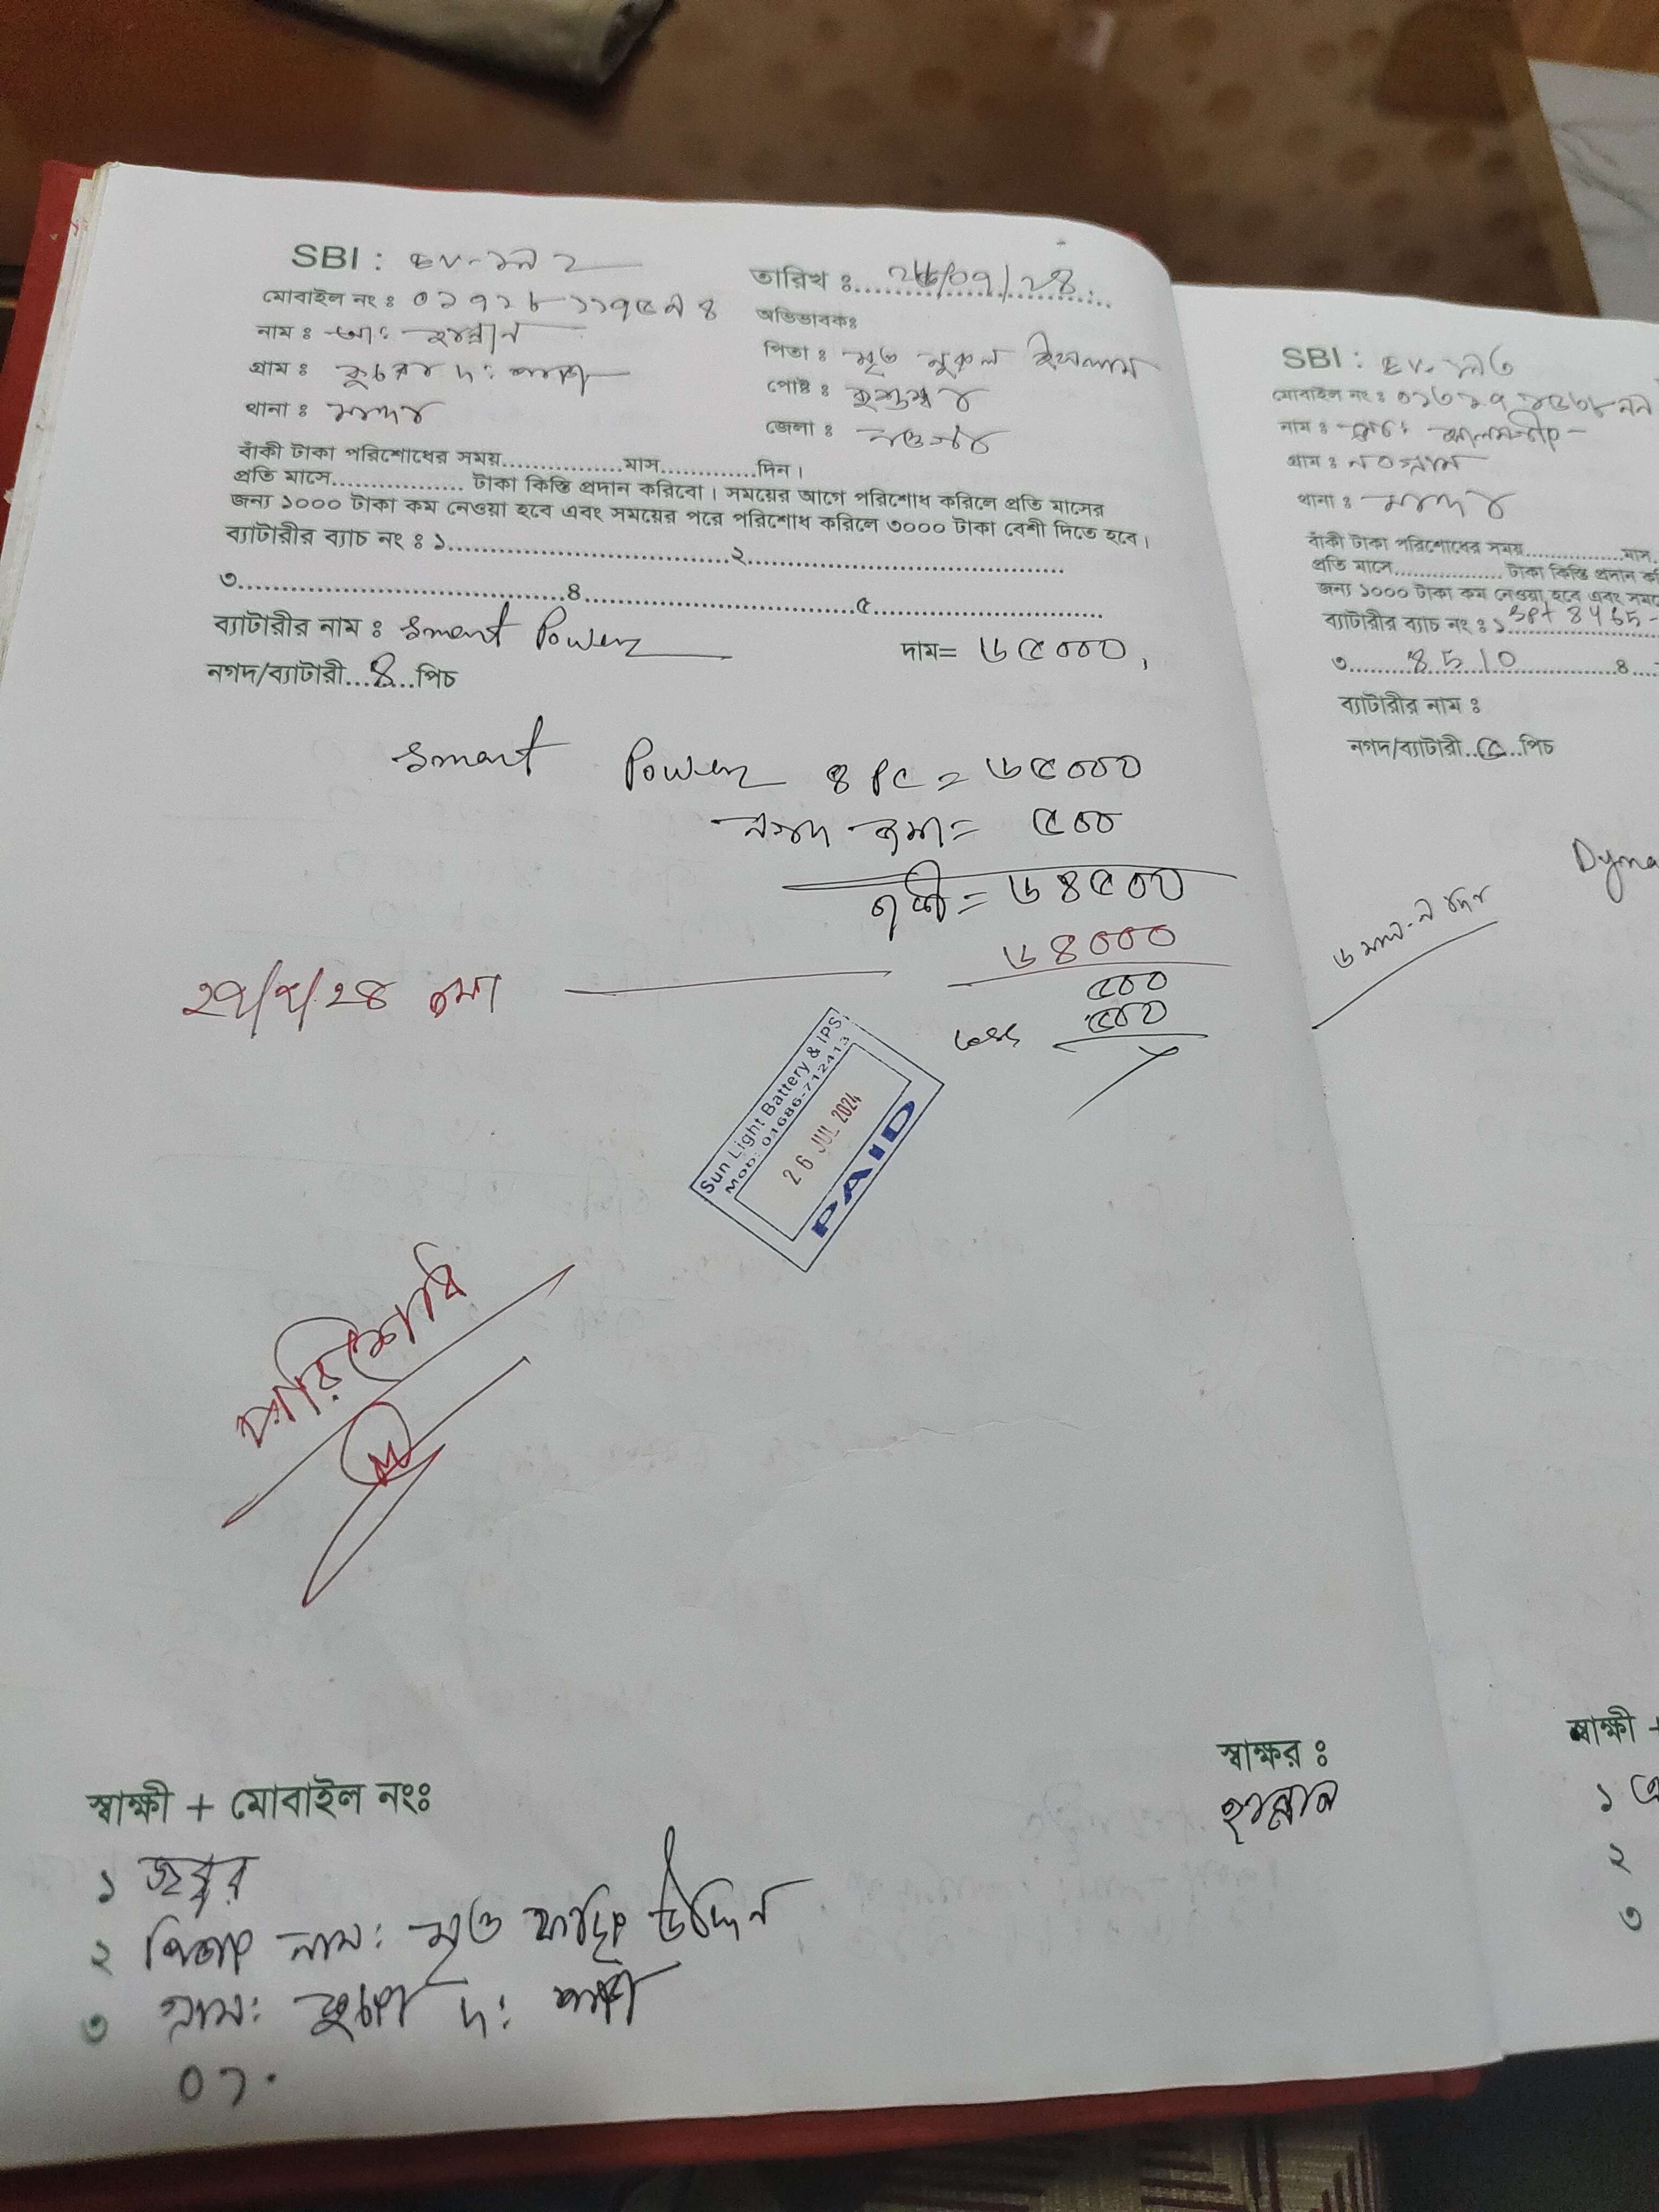 SBI : EV-১৯২
তারিখ ঃ ২৬/০৭/২৪
মোবাইল নং ঃ ০১৭২৮১১৭৫৯৪
অভিভাবকঃ
নাম ঃ আঃ হান্নান
পিতা ঃ মৃত নুরুল ইসলাম
গ্রাম ঃ দঃ পাড়া
পোষ্ট ঃ
থানা ঃ সদর
জেলা ঃ নওগাঁ
বাঁকী টাকা পরিশোধের সময়...............মাস............দিন।
প্রতি মাসে................. টাকা কিস্তি প্রদান করিবো। সময়ের আগে পরিশোধ করিলে প্রতি মাসের
জন্য ১০০০ টাকা কম নেওয়া হবে এবং সময়ের পরে পরিশোধ করিলে ৩০০০ টাকা বেশী দিতে হবে।
ব্যাটারীর ব্যাচ নং ঃ ১....................................২........................................
৩..........................................৪...................................৫.............................
ব্যাটারীর নাম ঃ Smart Power
দাম= ৬৫০০০,
নগদ/ব্যাটারী...৪...পিচ
Smart Power ৪ PC = ৬৫০০০
নগদ জমা = ৫০০
বাকী = ৬৪৫০০
৬৪০০০
২৭/৭/২৪ জমা
৫০০
Less ৫০০
Sun Light Battery & IPS
Mob: 01686-712413
26 JUL 2024
PAID
পরিশোধ
স্বাক্ষর ঃ
হান্নান
স্বাক্ষী + মোবাইল নংঃ
১ জব্বুর
২ পিতার নাম: মৃত উদ্দিন
৩ গ্রাম: দ: পাড়া
০১.
SBI : EV-১৯৩
মোবাইল নং ঃ
নাম ঃ মোঃ আলমগীর
গ্রাম ঃ
থানা ঃ সদর
বাঁকী টাকা পরিশোধের সময়...............মাস
প্রতি মাসে................. টাকা কিস্তি প্রদান
জন্য ১০০০ টাকা কম নেওয়া হবে এবং
ব্যাটারীর ব্যাচ নং ঃ ১ 8465-
৩ 8510 ৪
ব্যাটারীর নাম ঃ
নগদ/ব্যাটারী..৫..পিচ
৬ মাস
স্বাক্ষী +
১
২
৩